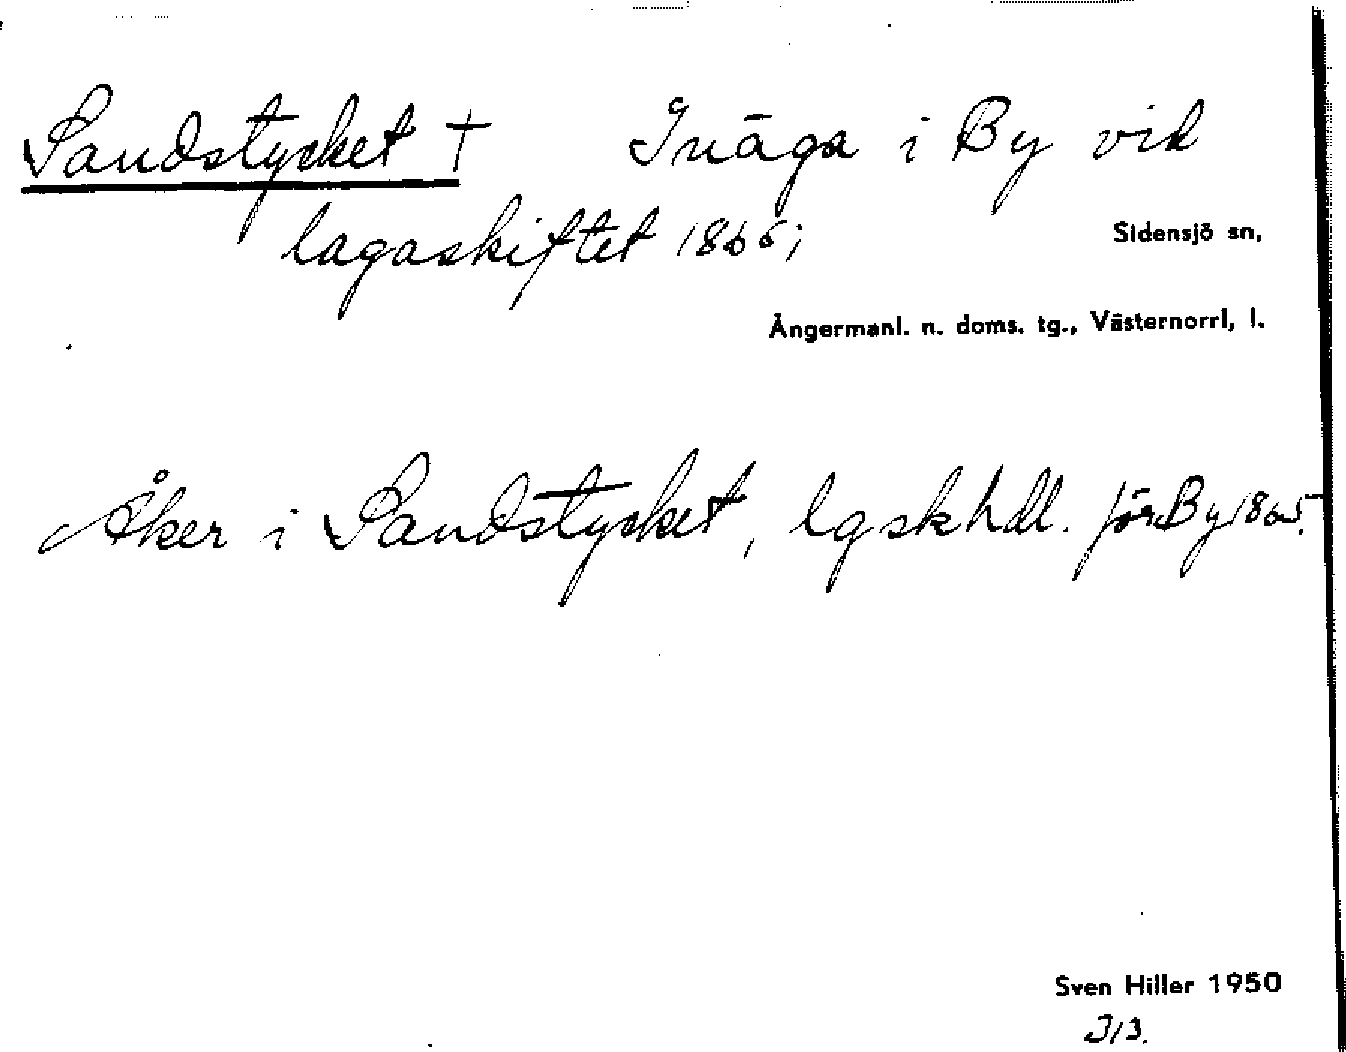 Sandstycket † Inäga i By vid
lagaskiftet 1865;
Sidensjö sn,
Ångermanl. n. doms. tg., Västernorrl, l.
Åker i Sandstycket, lgskhdl. för By 1865.
Sven Hiller 1950
J/3.